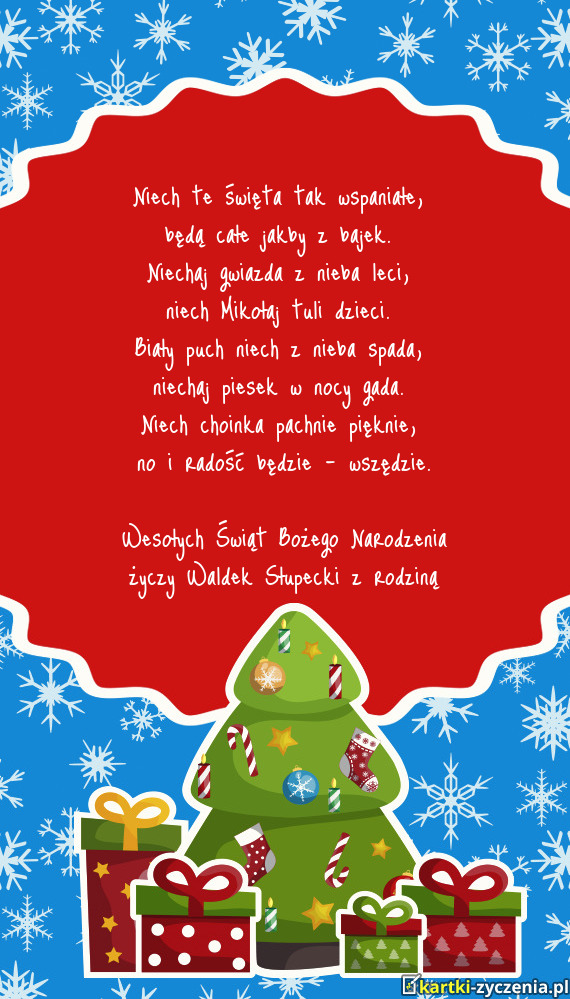 Niech te święta tak wspaniałe,
będą całe jakby z bajek.
Niechaj gwiazda z nieba leci,
niech Mikołaj tuli dzieci.
Biały puch niech z nieba spada,
niechaj piesek w nocy gada.
Niech choinka pachnie pięknie,
no i radość będzie - wszędzie.
Wesołych Świąt Bożego Narodzenia
życzy Waldek Słupecki z rodziną
kartki-zyczenia.pl